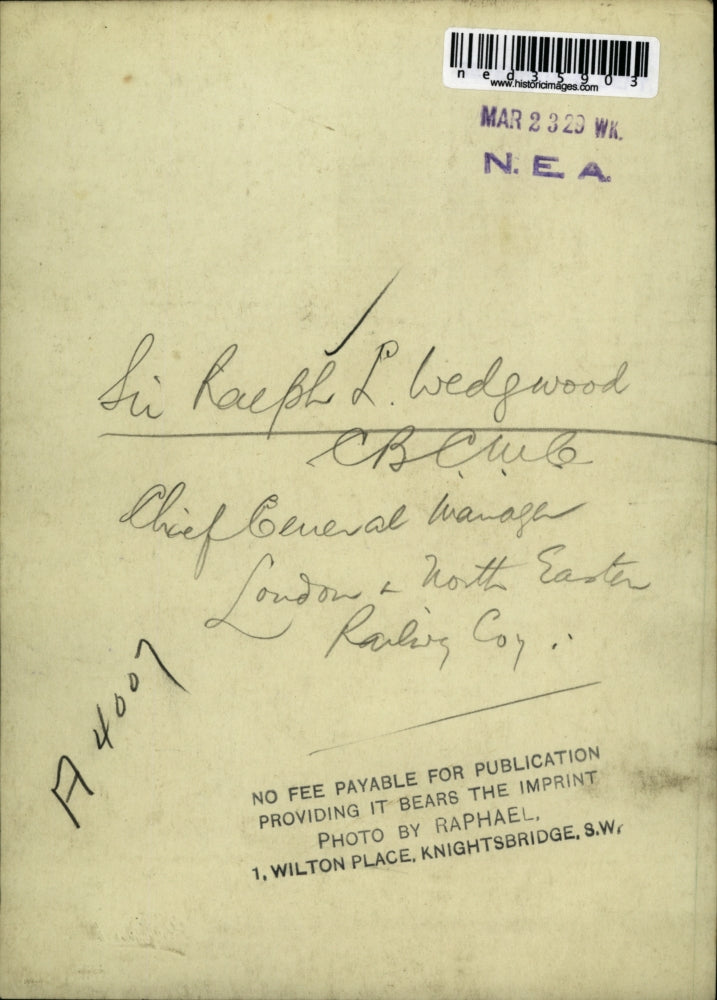 ned35903
www.historicimages.com
MAR 23 29 WK.
N.E.A.
Sir Ralph L. Wedgwood
CB CMG
Chief General Manager
London & North Eastern
Railway Coy.
A 4007
NO FEE PAYABLE FOR PUBLICATION
PROVIDING IT BEARS THE IMPRINT
PHOTO BY RAPHAEL,
1, WILTON PLACE, KNIGHTSBRIDGE, S.W.